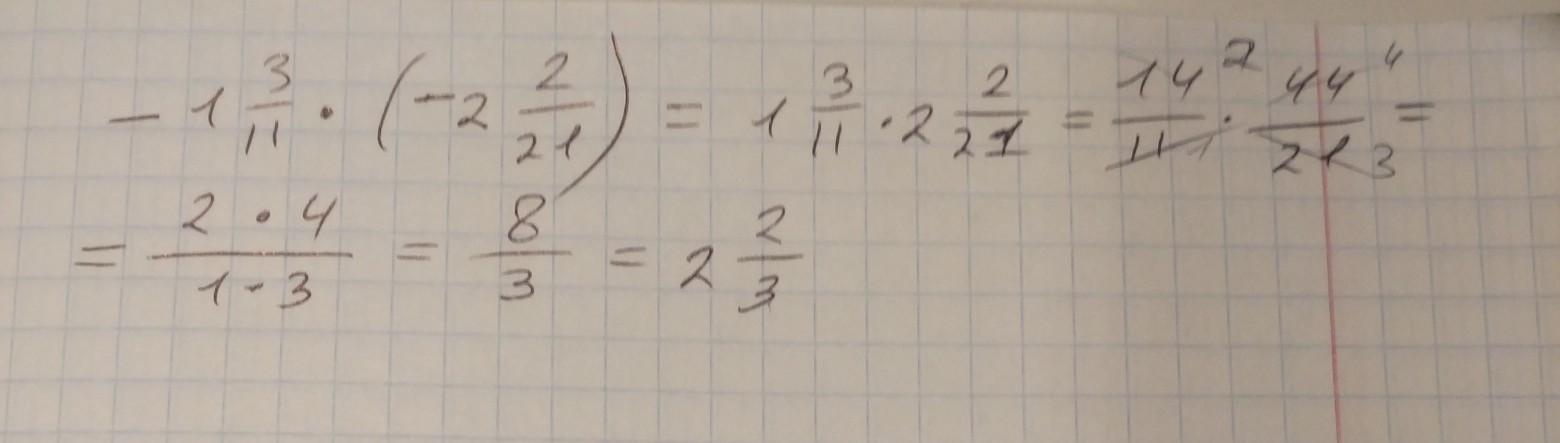 - 1 3/11 · (-2 2/21) = 1 3/11 · 2 2/21 = 14 2/11 1 · 44 4/21 3 =
= 2 · 4/1 · 3 = 8/3 = 2 2/3